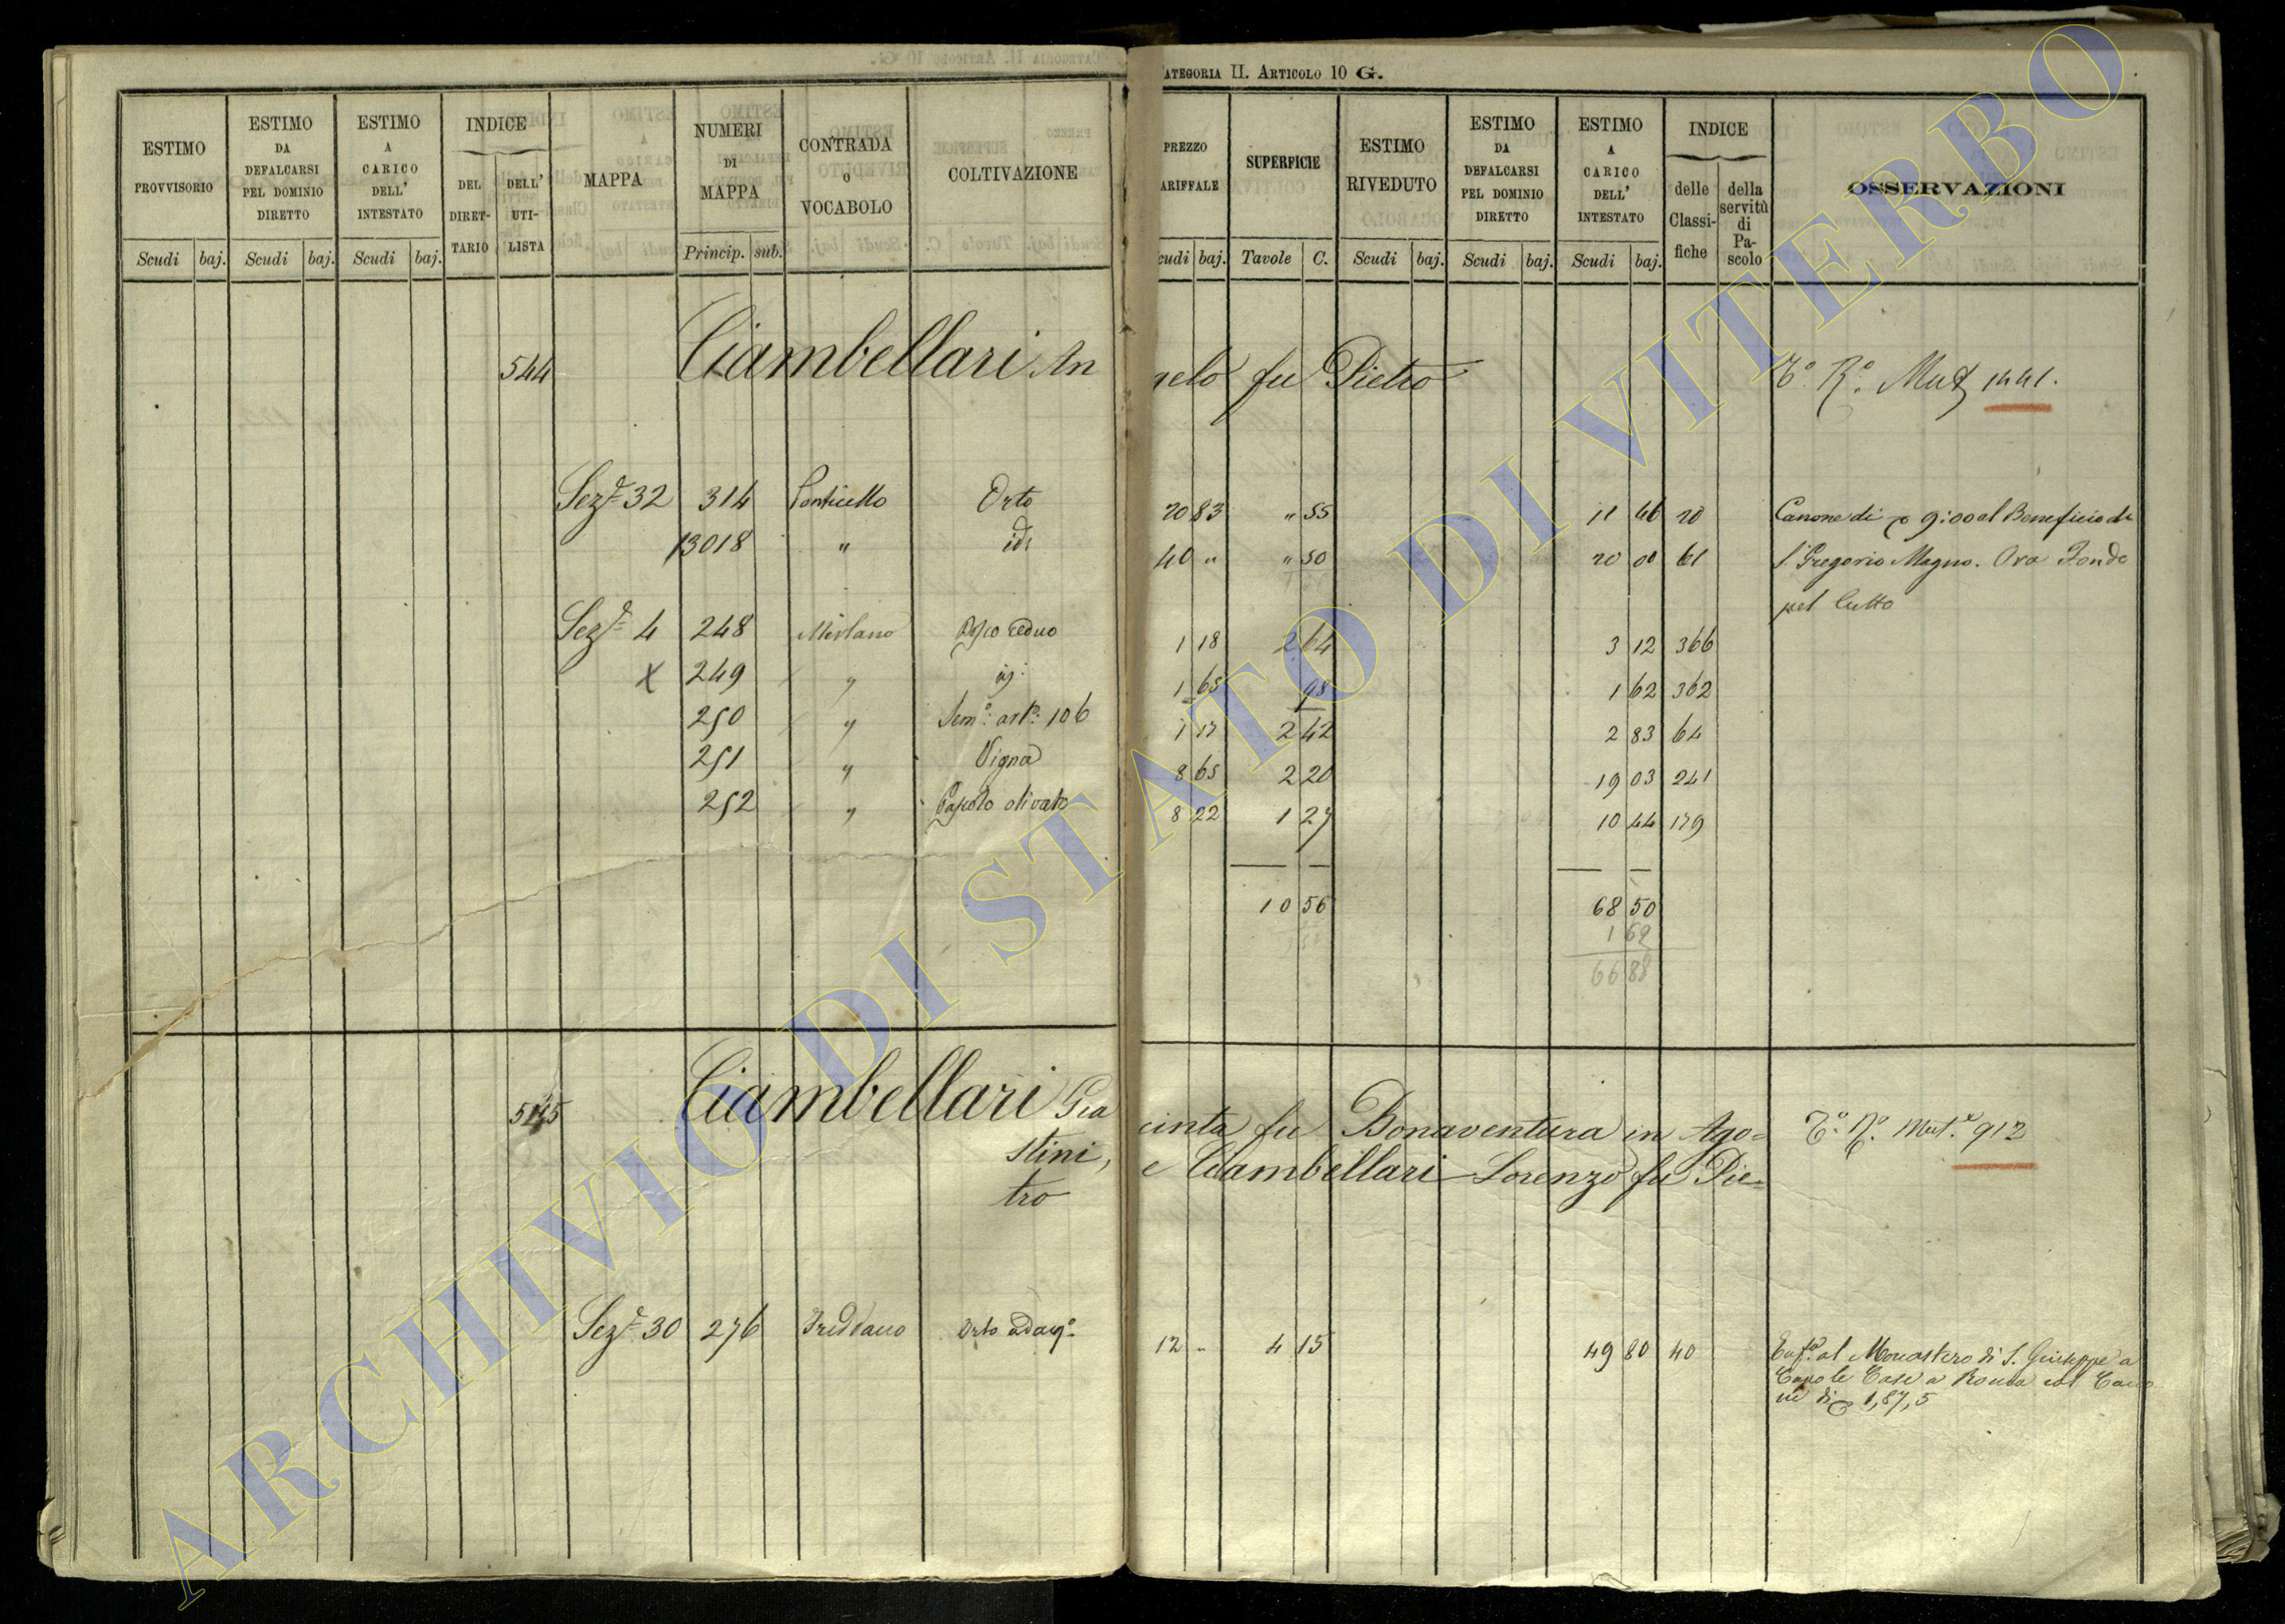 CATEGORIA II. ARTICOLO 10 G.
ATEGORIA II. ARTICOLO 10 G.
ESTIMO PROVVISORIO Scudi baj.
ESTIMO DA DEFALCARSI PEL DOMINIO DIRETTO Scudi baj.
ESTIMO A CARICO DELL' INTESTATO Scudi baj.
INDICE DEL DIRET-TARIO DELL' UTI-LISTA
MAPPA
NUMERI DI MAPPA Princip. sub.
CONTRADA O VOCABOLO
COLTIVAZIONE
PREZZO ARIFFALE cudi baj.
SUPERFICIE Tavole C.
ESTIMO RIVEDUTO Scudi baj.
ESTIMO DA DEFALCARSI PEL DOMINIO DIRETTO Scudi baj.
ESTIMO A CARICO DELL' INTESTATO Scudi baj.
INDICE delle Classi-fiche della servitù di Pa-scolo
OSSERVAZIONI
544 Ciambellari An gelo fu Pietro Tº Rº Mut 1441.
Sezº 32 314 Ponticello Orto 20 83 " 55 11 46 20 Canone di 9:00 al Beneficio di
13018 " id: 40 " " 50 20 00 61 S. Gregorio Magno. Ora Fondo
pel Culto
Sezº 4 248 Merlano Bosco ceduo 1 18 2 64 3 12 366
X 249 " id: 1 65 98 1 62 362
250 " Sem: 106 1 17 2 42 2 83 64
251 " Vigna 8 65 2 20 19 03 241
252 " Pascolo olivato 8 22 1 27 10 44 179
10 56 68 50
1 62
66 88
545 Ciambellari Gia cinta fu Bonaventura in Ago= Tº Rº Mut.e 912
stini, e Ciambellari Lorenzo fu Pie=
tro
Sezº 30 276 Freddano Orto adacqº 12 " 4 15 49 80 40 al Monastero di S. Giuseppe a
Capo le Case a Roma col Cano
ne di 1,87,5
ARCHIVIO DI STATO DI VITERBO